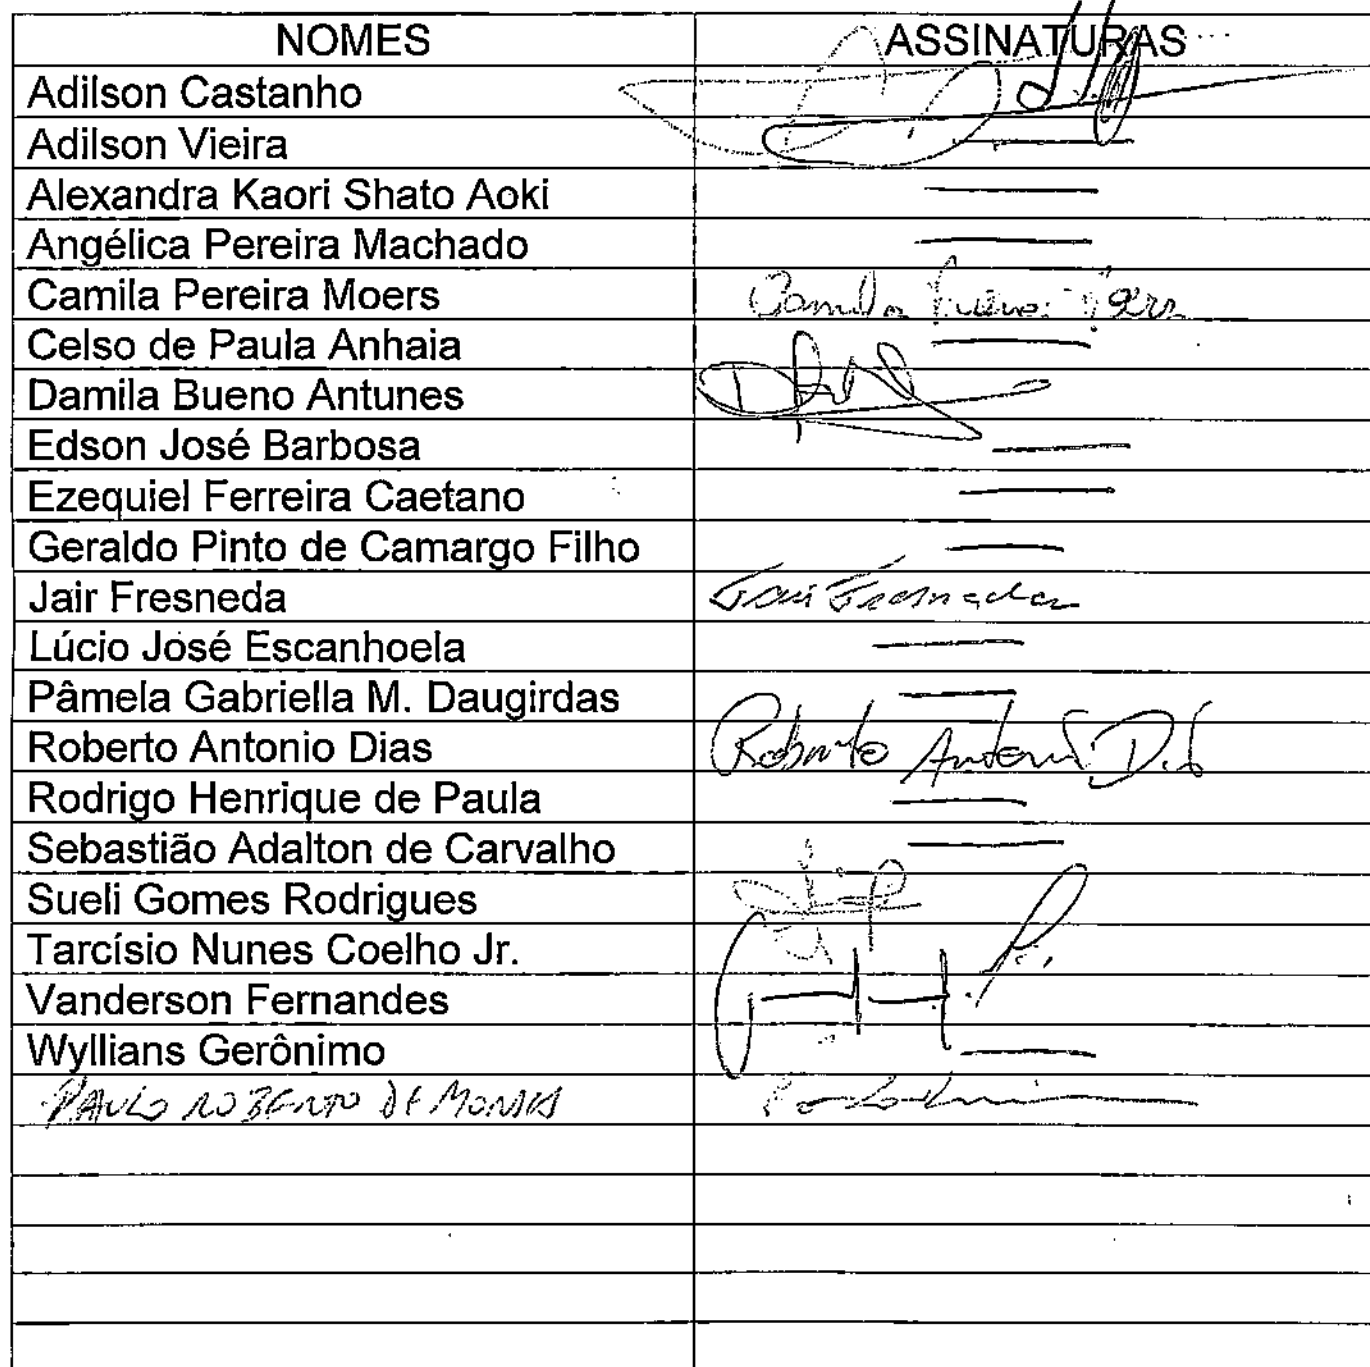 NOMES ASSINATURAS
Adilson Castanho
Adilson Vieira
Alexandra Kaori Shato Aoki
Angélica Pereira Machado
Camila Pereira Moers Camila Pereira Moers
Celso de Paula Anhaia
Damila Bueno Antunes
Edson José Barbosa
Ezequiel Ferreira Caetano
Geraldo Pinto de Camargo Filho
Jair Fresneda Jair Fresneda
Lúcio José Escanhoela
Pâmela Gabriella M. Daugirdas
Roberto Antonio Dias Roberto Antonio Dias
Rodrigo Henrique de Paula
Sebastião Adalton de Carvalho
Sueli Gomes Rodrigues
Tarcísio Nunes Coelho Jr.
Vanderson Fernandes
Wyllians Gerônimo
PAULO ROBERTO DE MORAES